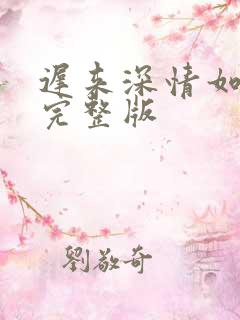 遲来深情如
完整版
劉敬奇